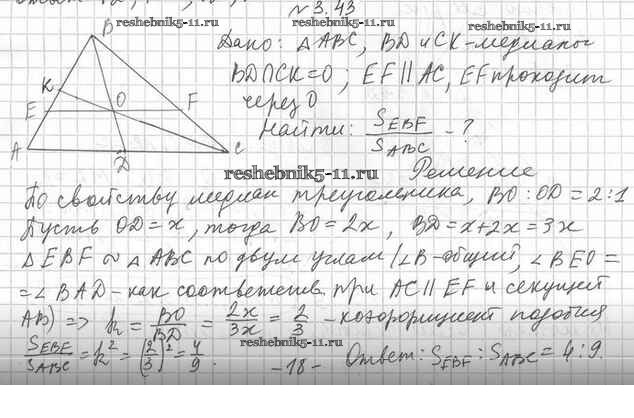 № 3.43
reshebnik5-11.ru
reshebnik5-11.ru
Дано: △ABC, BD и CK - медианы
BD∩CK=O; EF ∥ AC, EF проходит
через O
Найти: S_EBF / S_ABC - ?
B
K
O
E
F
A
D
C
reshebnik5-11.ru
Решение
По свойству медиан треугольника, BO : OD = 2 : 1
Пусть OD = x, тогда BO = 2x, BD = x + 2x = 3x
△EBF ∾ △ABC по двум углам (∠B - общий, ∠BEO =
= ∠BAD - как соответств. при AC ∥ EF и секущей
AB) => k = BO/BD = 2x/3x = 2/3 - коэффициент подобия
reshebnik5-11.ru
S_EBF/S_ABC = k² = (2/3)² = 4/9.
-18-
Ответ: S_EBF : S_ABC = 4 : 9.